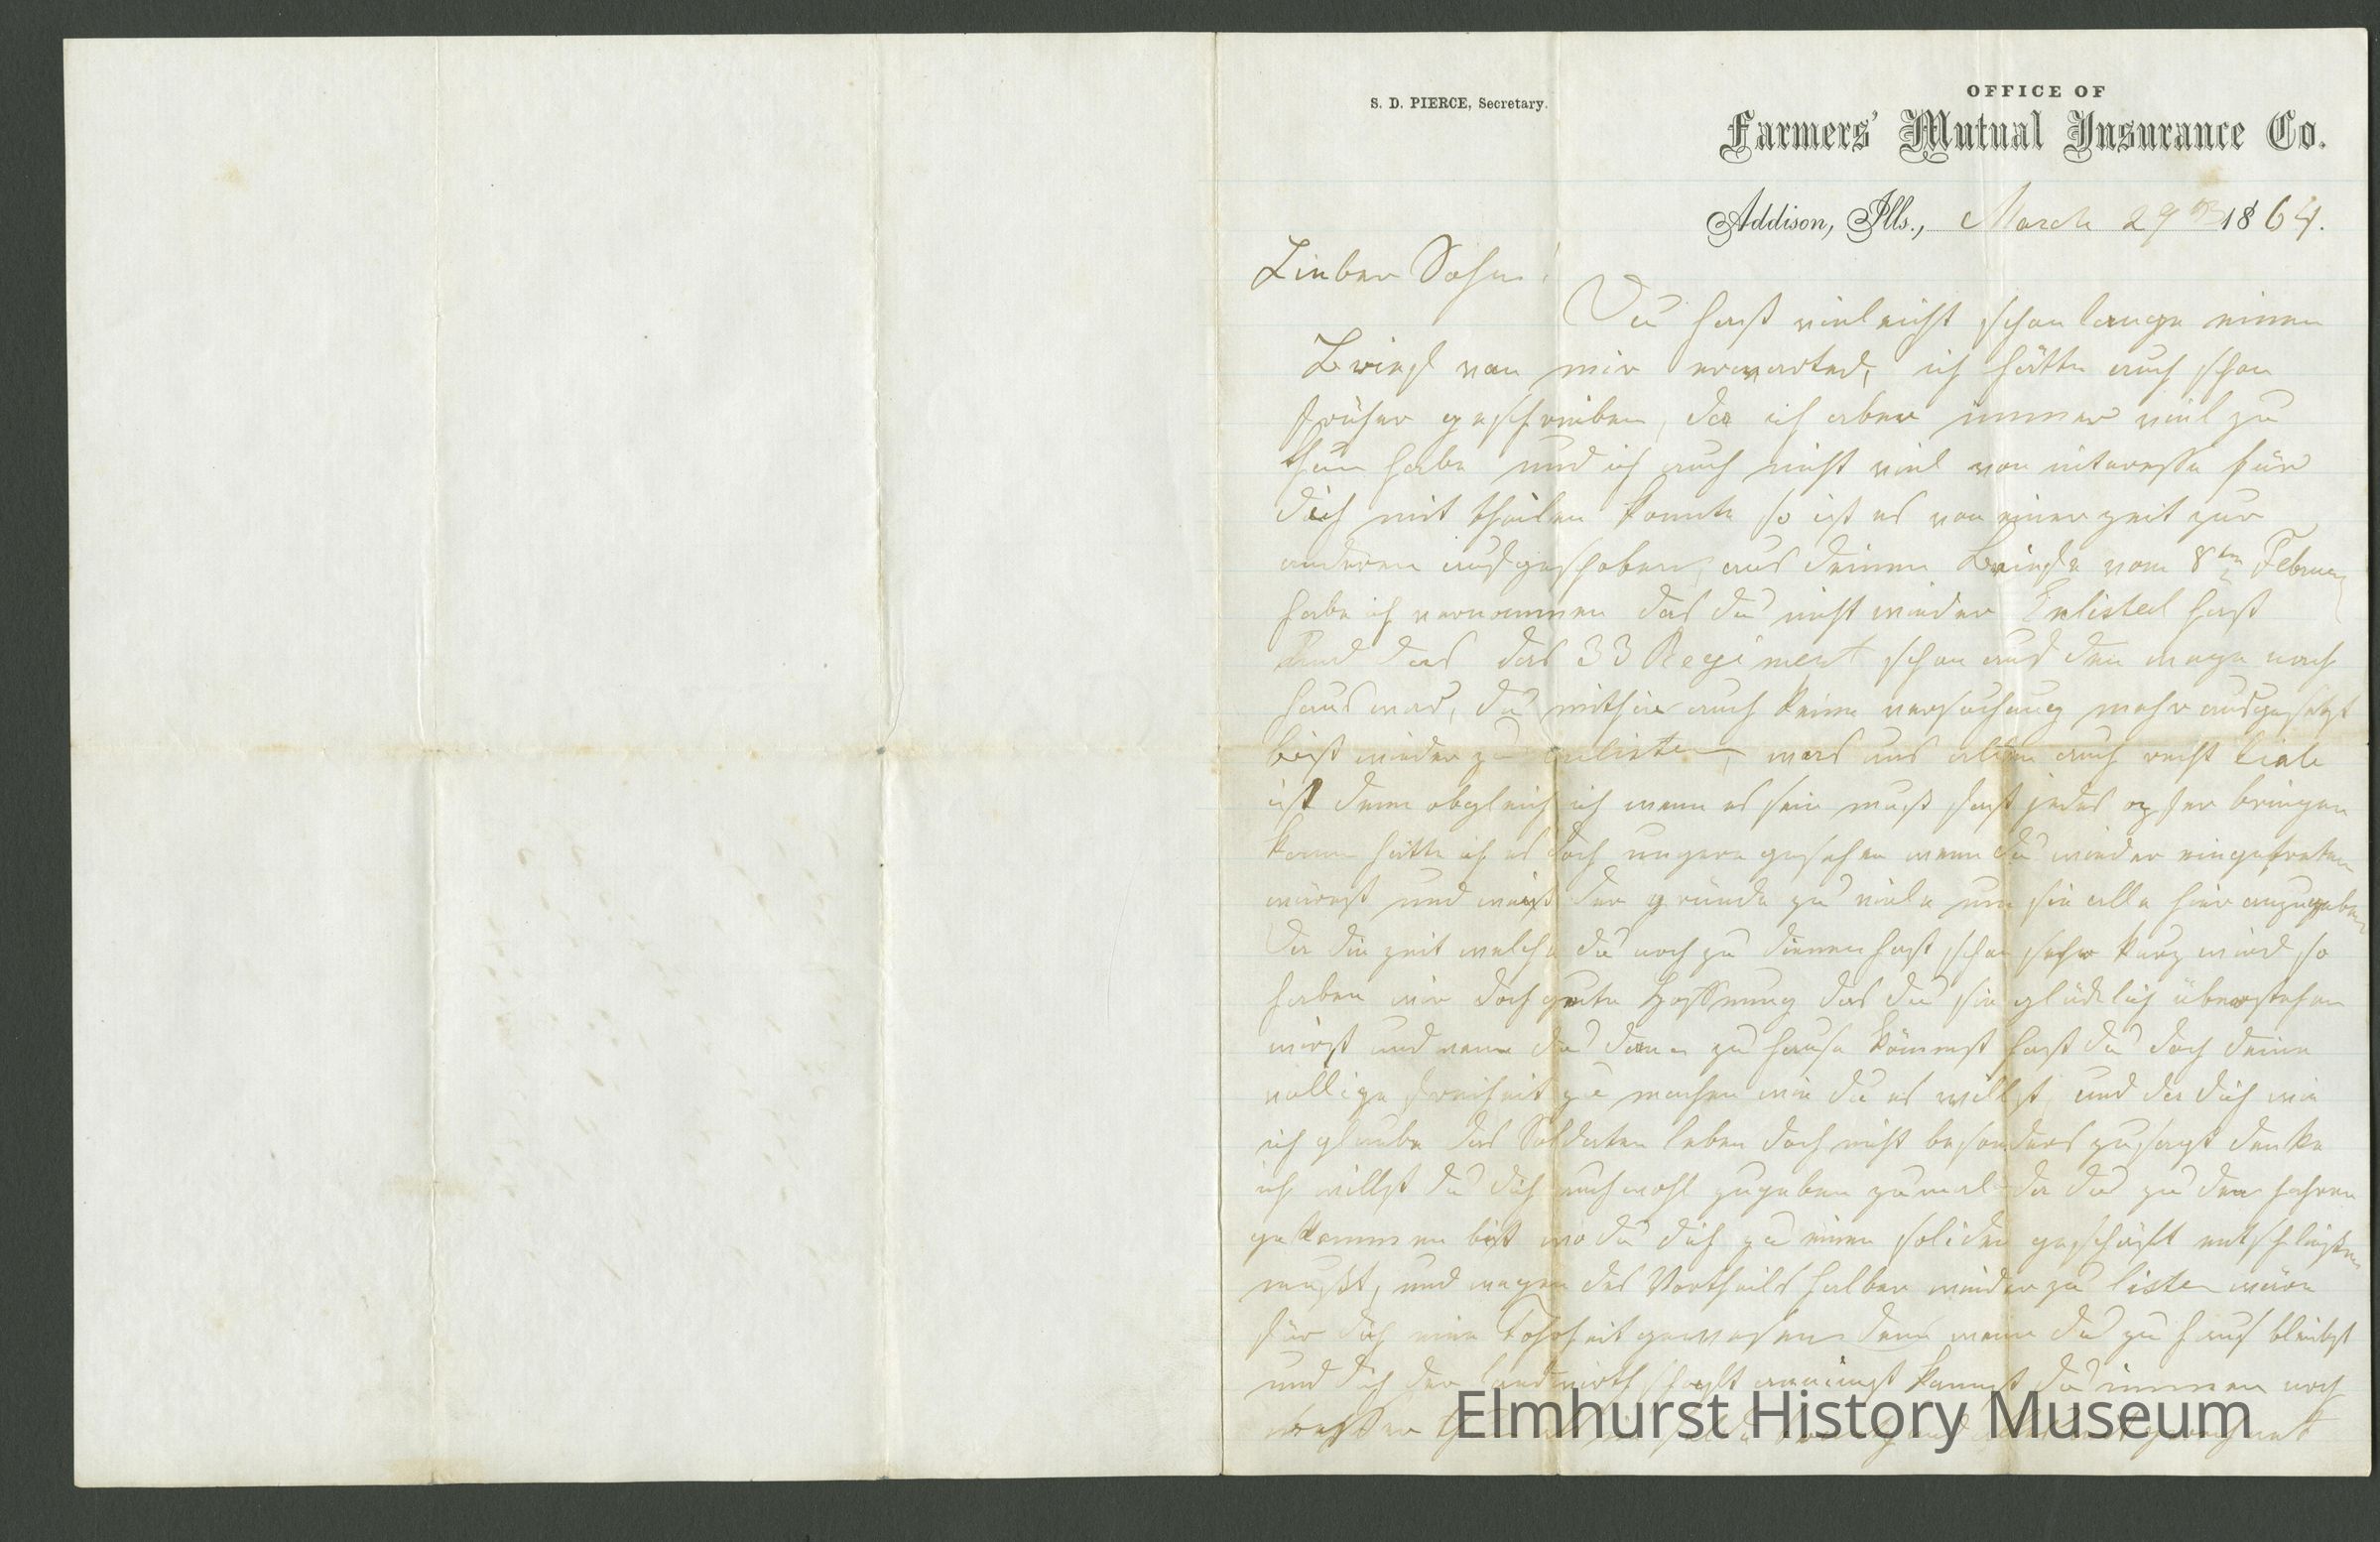 S. D. PIERCE, Secretary.
OFFICE OF
Farmers' Mutual Insurance Co.
Addison, Ills., March 29th 1864.
Lieber Sohn!
Du hast vieleicht schon lange einen
Brief von mir erwarted, ich hätte auch schon
früher geschrieben, da ich aber immer viel zu
thun habe und ich auch nicht viel von interesse für
dich mit theilen konnte so ist es von einer zeit zur
anderen aufgeschoben, aus deinem Briefe vom 8ten Februar
habe ich vernommen das du nicht wieder Enlisted hast
und das das 33 Regiment schon auf dem wege nach
haus war, du mithin auch keine versuchung mehr ausgesetzt
bist wieder zu enlisten, was uns allen auch recht lieb
ist denn obgleich ich wenn es sein muß fast jedes opfer bringen
kann hätte ich es doch ungern gesehen wenn du wieder eingetreten
wärest und weiß der gründe zu viele um sie alle hier anzugeben
Da die zeit welche du noch zu dienen hast schon sehr kurz wird so
haben wir doch gute Hoffnung das du sie glücklich überstehen
wirst und wenn du dann zu hause kömmst hast du doch deine
vollige freiheit zu machen wie du es willst, und da dich wie
ich glaube das Soldaten leben doch nicht besonders zusagt denke
ich willst du dich auch wohl zugeben zumal da du zu den Jahren
gekommen bist wo du dich zu einem soliden geschäft entschließen
mußt, und wegen des Vortheils halber wieder zu listen wäre
für dich eine Tohrheit gewesen denn wenn du zu haus bleibst
und dich der landwirthschaft annimst kannst du immer noch
besser
Elmhurst History Museum